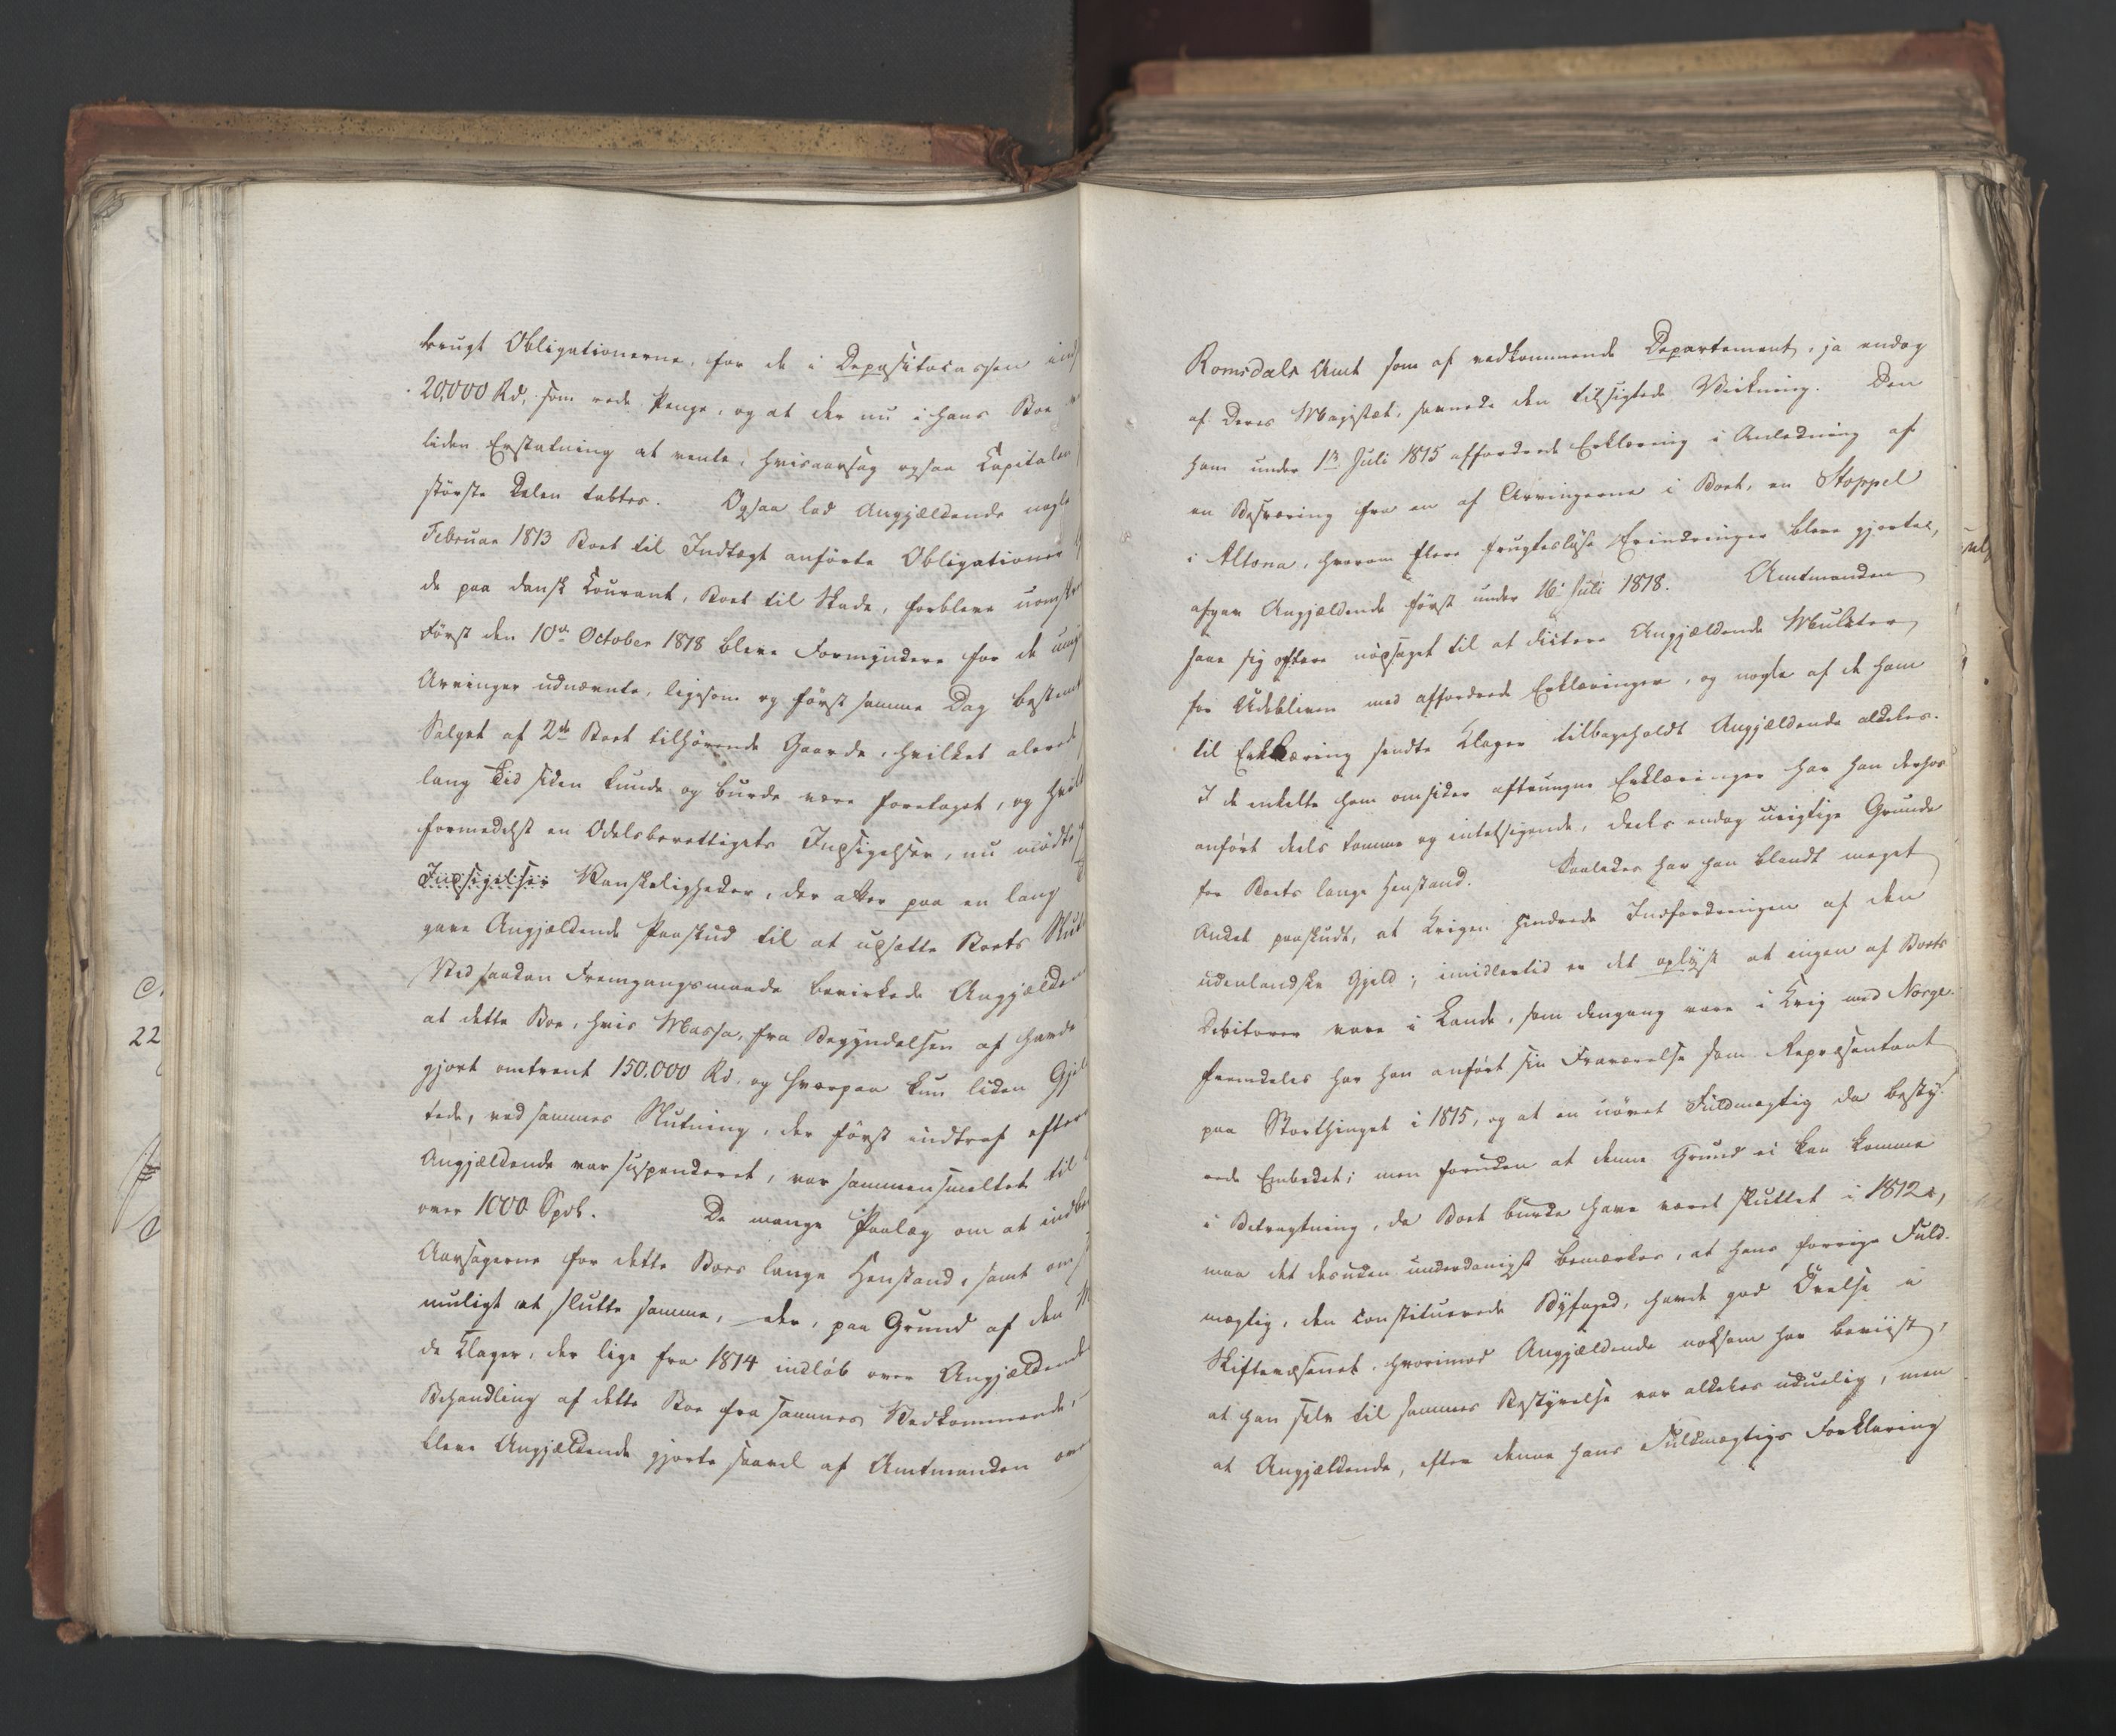 brugt Obligationerne, for de i Depositocassen ind
20,000 Rd, som rede Penge, og at der nu i hans Boe
liden Erstatning at vente, hvisaarsag ogsaa Capitalen
störste Delen tabtes. Ogsaa lod Angjældende nogle
Februar 1813 Boet til Indtægt anförte Obligationer
de paa dansk Courant, Boet til Skade, forblive uom
Först den 10de October 1818 bleve Formyndere for de umy
Arvinger udnævnte, ligesom og först samme Dag bestemt
Salget af 2de Boet tilhörende Gaarde, hvilket alered
lang Tid siden kunde og burde være foretaget, og hvil
formedelst en Odelsberettigets Indsigelser, nu mödte
Indsigelser Vanskeligheder, der atter paa en lang
gave Angjældende Paaskud til at udsætte Boets Slut
Ved saadan Fremgangsmaade bevirkede Angjælden
at dette Boe, hvis Massa, fra Begyndelsen af havde
gjort omtrent 150,000 Rd. og hvorpaa kun liden Gjel
tede, ved sammes Slutning, der först indtraf efter
Angjældende var suspenderet, var sammensmeltet til
over 1000 Spd. De mange Paalæg om at indbe
Aarsagerne for dette Boes lange Henstand, samt om
muligt at slutte samme, der, paa Grund af den M
de Klager, der lige fra 1814 indlöb over Angjældende
Behandling af dette Boe fra sammes Vedkommende,
bleve Angjældende gjorte saavel af Amtmanden over
Romsdals Amt som af vedkommende Departement, ja endog
af Deres Majestæt, savnede den tilsigtede Virkning. Den
ham under 1ste Juli 1815 affordrede Erklæring i Anledning af
en Besværing fra en af Arvingerne i Boet, en Stoppel
i Altona, hvorom flere frugteslöse Erindringer bleve gjorte,
afgav Angjældende först under 16de Juli 1818. Amtmanden
saae sig oftere nödsaget til at dictere Angjældende Mulkter
for Udebliven med affordrede Erklæringer, og nogle af de ham
til Erklæring sendte Klager tilbageholdt Angjældende aldeles.
I de enkelte ham omsider aftvungne Erklæringer har han derhos
anfört deels tomme og intetsigende, deels endog urigtige Grunde
for Boets lange Henstand. Saaledes har han blandt meget
Andet paaskudt, at Krigen hindrede Inddrivelsen af den
udenlandske Gjeld; imidlertid er det oplyst at ingen af Boets
Debitorer vare i Lande, som dengang vare i Krig med Norge.
Fremdeles har han anfört sin Fraværelse som Repræsentant
paa Storthinget i 1815, og at en uövet Fuldmægtig da besty-
rede Embedet; men foruden at denne Grund ei kan komme
i Betragtning, da Boet burde have været sluttet i 1812,
maa det desuden underdanigst bemærkes, at hans forrige Fuld-
mægtig, den constituerede Byfoged, havde god Övelse i
Skiftevæsenet, hvorimod Angjældende noksom har beviist,
at han selv til sammes Bestyrelse var aldeles uduelig, men
at Angjældende, efter denne hans Fuldmægtigs Forklaring
22